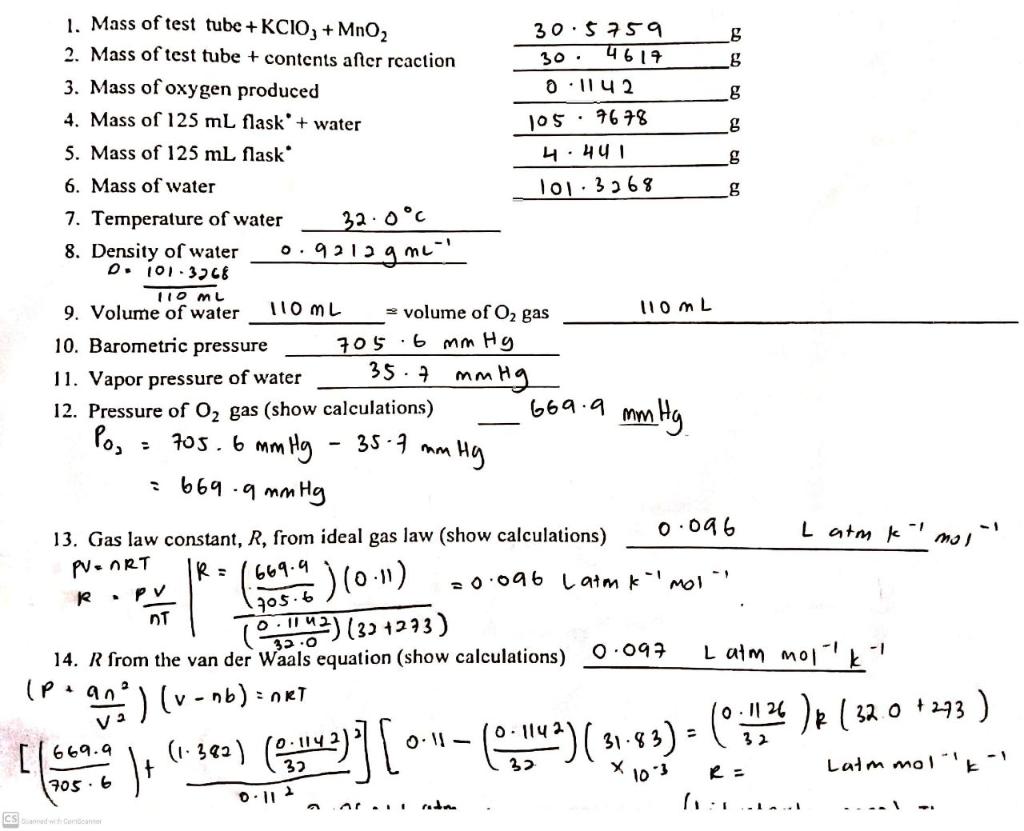 1. Mass of test tube + KClO3 + MnO2 30.5759 g
2. Mass of test tube + contents after reaction 30.4617 g
3. Mass of oxygen produced 0.1142 g
4. Mass of 125 mL flask* + water 105.7678 g
5. Mass of 125 mL flask* 4.441 g
6. Mass of water 101.3268 g
7. Temperature of water 32.0°C
8. Density of water 0.9212 g mL⁻¹
D = 101.3268
110 mL
9. Volume of water 110 mL = volume of O2 gas 110 mL
10. Barometric pressure 705.6 mm Hg
11. Vapor pressure of water 35.7 mmHg
12. Pressure of O2 gas (show calculations) 669.9 mmHg
PO2 = 705.6 mmHg - 35.7 mmHg
= 669.9 mmHg
13. Gas law constant, R, from ideal gas law (show calculations) 0.096 L atm k⁻¹ mol⁻¹
PV = nRT
R = PV/nT
R = (669.9/705.6)(0.11) / (0.1142/32.0)(32+273) = 0.096 L atm k⁻¹ mol⁻¹
14. R from the van der Waals equation (show calculations) 0.097 L atm mol⁻¹ k⁻¹
(P + an²/V²)(V - nb) = nRT
[(669.9/705.6) + (1.382)(0.1142/32)²/0.11²][0.11 - (0.1142/32)(31.83 × 10⁻³) = (0.1126/32)R(32.0 + 273)
R = L atm mol⁻¹ k⁻¹
CS Scanned with CamScanner